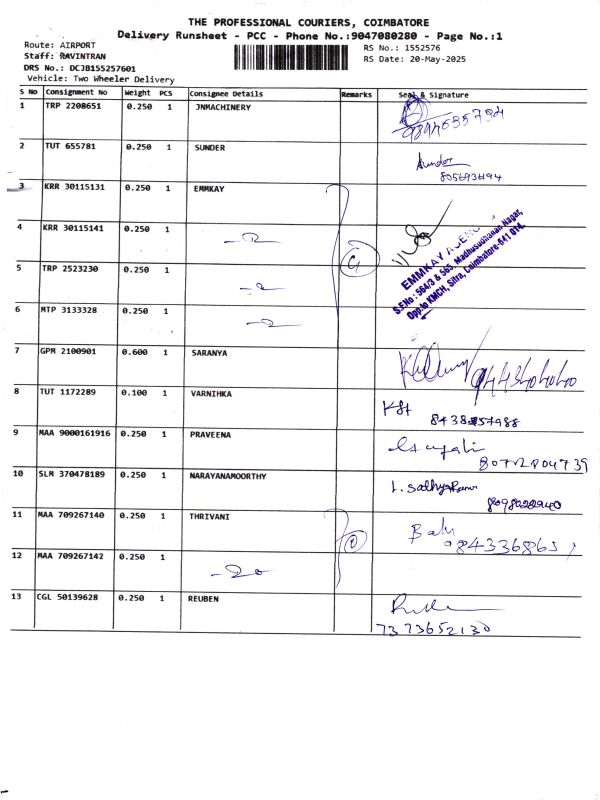 THE PROFESSIONAL COURIERS, COIMBATORE
Delivery Runsheet - PCC - Phone No.:9047080280 - Page No.:1
Route: AIRPORT
RS No.: 1552576
Staff: RAVINTRAN
RS Date: 20-May-2025
DRS No.: DCJB155257601
Vehicle: Two Wheeler Delivery
S No Consignment No Weight PCS Consignee Details Remarks Seal & Signature
1 TRP 2208651 0.250 1 JNMACHINERY
2 TUT 655781 0.250 1 SUNDER
Sunder
8056936194
3 KRR 30115131 0.250 1 EMMKAY
4 KRR 30115141 0.250 1
EMMKAY AGENCI
S.F.No : 564/3 & 565, Madhusudhanan Nagar,
Opp to KMCH, Sitra, Coimbatore-641 014.
5 TRP 2523230 0.250 1
6 MTP 3133328 0.250 1
7 GPM 2100901 0.600 1 SARANYA
8 TUT 1172289 0.100 1 VARNIHKA
9 MAA 9000161916 0.250 1 PRAVEENA
8072804739
10 SLM 370478189 0.250 1 NARAYANAMOORTHY
11 MAA 709267140 0.250 1 THRIVANI
Balu
12 MAA 709267142 0.250 1
13 CGL 50139628 0.250 1 REUBEN
7373652130